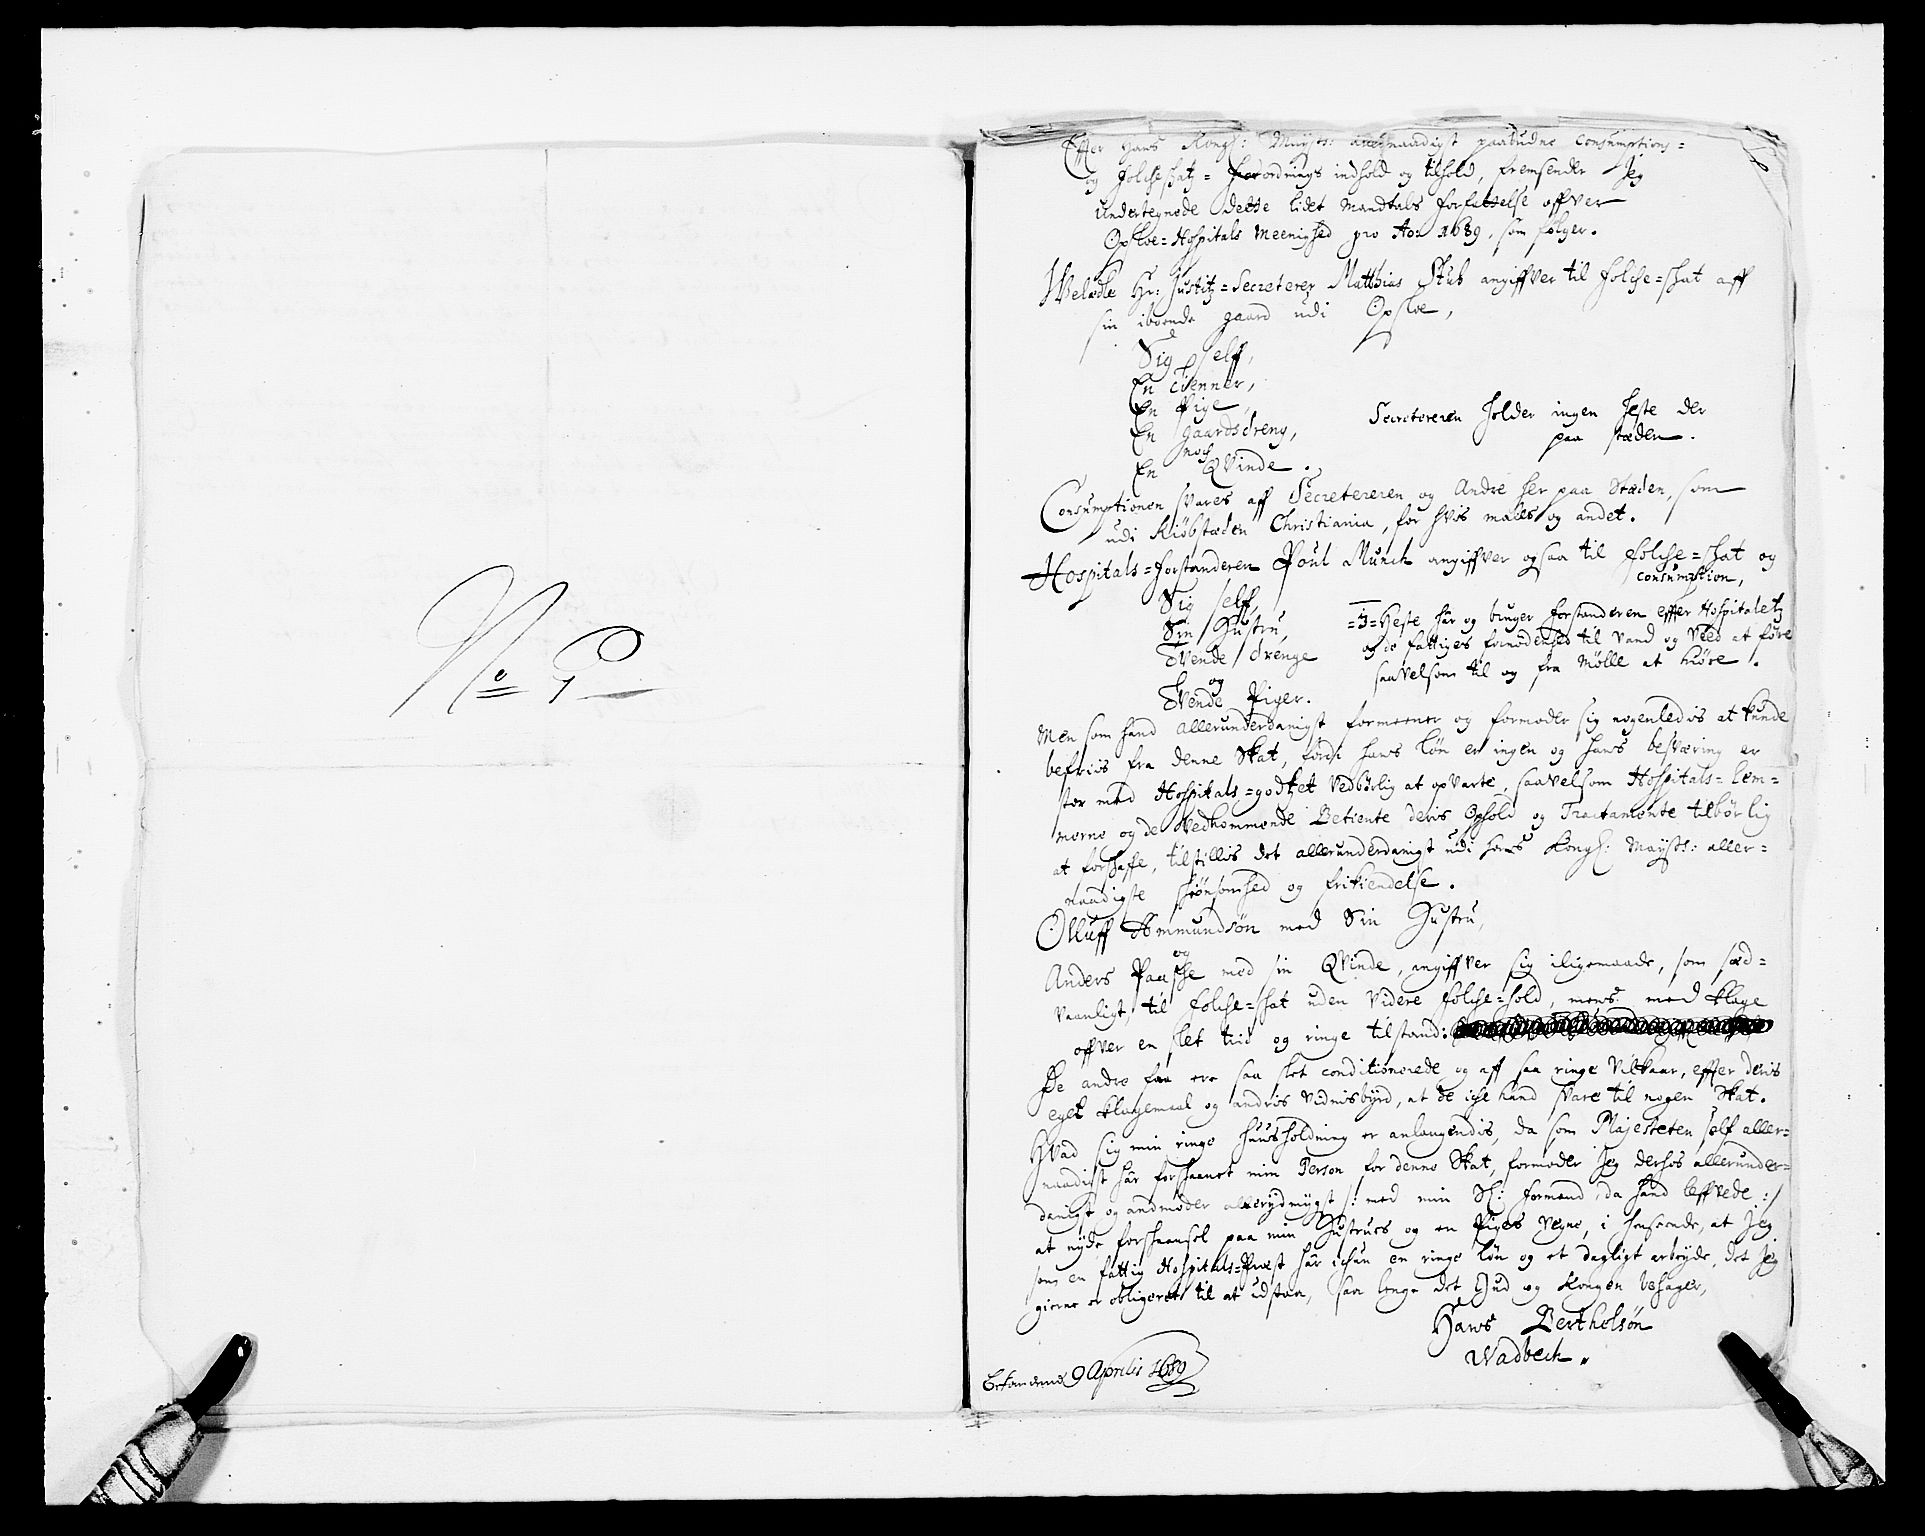 No 9
Effter Hans Kongl: Mayts: allernaadigst paabudne Consumptions=
og folcheskatz= forordnings indhold og tilhold, fremsender Jeg
undertegnede dette lidet Mandtals forfattelse offver
Opsloe=Hospitals Meenighed pro Ao: 1689, som følger.
Welædle Hr: Justitz=Secreterer Matthias Stub angiffver til folche=skat aff
sin iboende gaard udi Opsloe,
Sig self,
En tienner,
En Pige,
En gaardsdreng,
noch
En Qvinde.
Secretereren holder ingen heste der
paa stæden.
Consumptionen svares aff Secretereren og Andre her paa Stæden, som
udi Kiøbstæden Christiania, for hvis males og andet.
Hospitals=forstanderen Poul Munck angiffver ogsaa til folche=skat og
Consumption,
Sig self,
Sin Hustru,
Tvende drenge
og
Tvende Piger.
=3= Heste har og bruger forstanderen effter Hospitaletz
og de fattiges fornødenhed til Vand og Veed at føre
saavelsom til og fra Mølle at kiøre.
Men som hand allerunderdanigst formeener og formoder sig nogenledis at kunde
befriis fra denne Skat, fordi hans løn er ingen og hans besværing er
stor med Hospitals=godset vedbørlig at opvarte, saavelsom Hospitals=lem=
merne og de vedkommende Betiente deris Ophold og Tractamente tilbørlig
at forskaffe, tilstillis det allerunderdanigst udi hans Kongl: Mayts: aller=
naadigste skiønsomhed og frikiendelse.
Olluff Ammundsøn med Sin Hustru,
og
Anders Paaske med sin Qvinde, angiffver sig iligemaade, som sæd=
vaanligt, til folche=skat uden videre folche=hold, mens med klage
offver en slet tid og ringe tilstand:
De andre faa ere saa slet conditionerede og aff saa ringe Vilkaar, effter deris
eget klagemaal og andris vidnisbyrd, at de iche kand svare til nogen Skat.
Hvad sig min ringe huusholdning er anlangendis, da som Majesteten self aller=
naadigst har forskaanet min Person for denne Skat, formoder Jeg derhos allerunder=
danigst og anmoder allerydmygst /: med min Sl: formand, da hand leffvede :/
at nyde forskaansel paa min Hustrues og en Piges vegne, i henseende, at Jeg
som en fattig Hospitals=Præst har ichun en ringe løn og et dagligt arbeyde, det Jeg
gierne er obligeret til at udstaa, saa lenge det Gud og Kongen behager,
Hans Bertholsøn
Wadbech.
9 Aprilis 1689